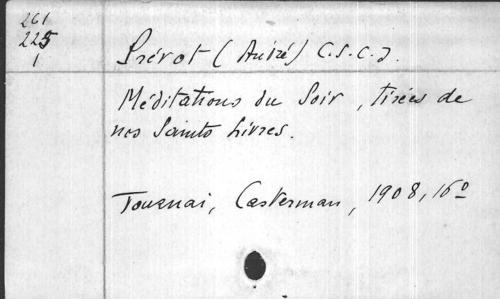 261
225
1
Prévot (André) C.S.C.J.
Méditations du Soir, tirées de
nos Saints Livres.
Tournai, Casterman, 1908, 16º